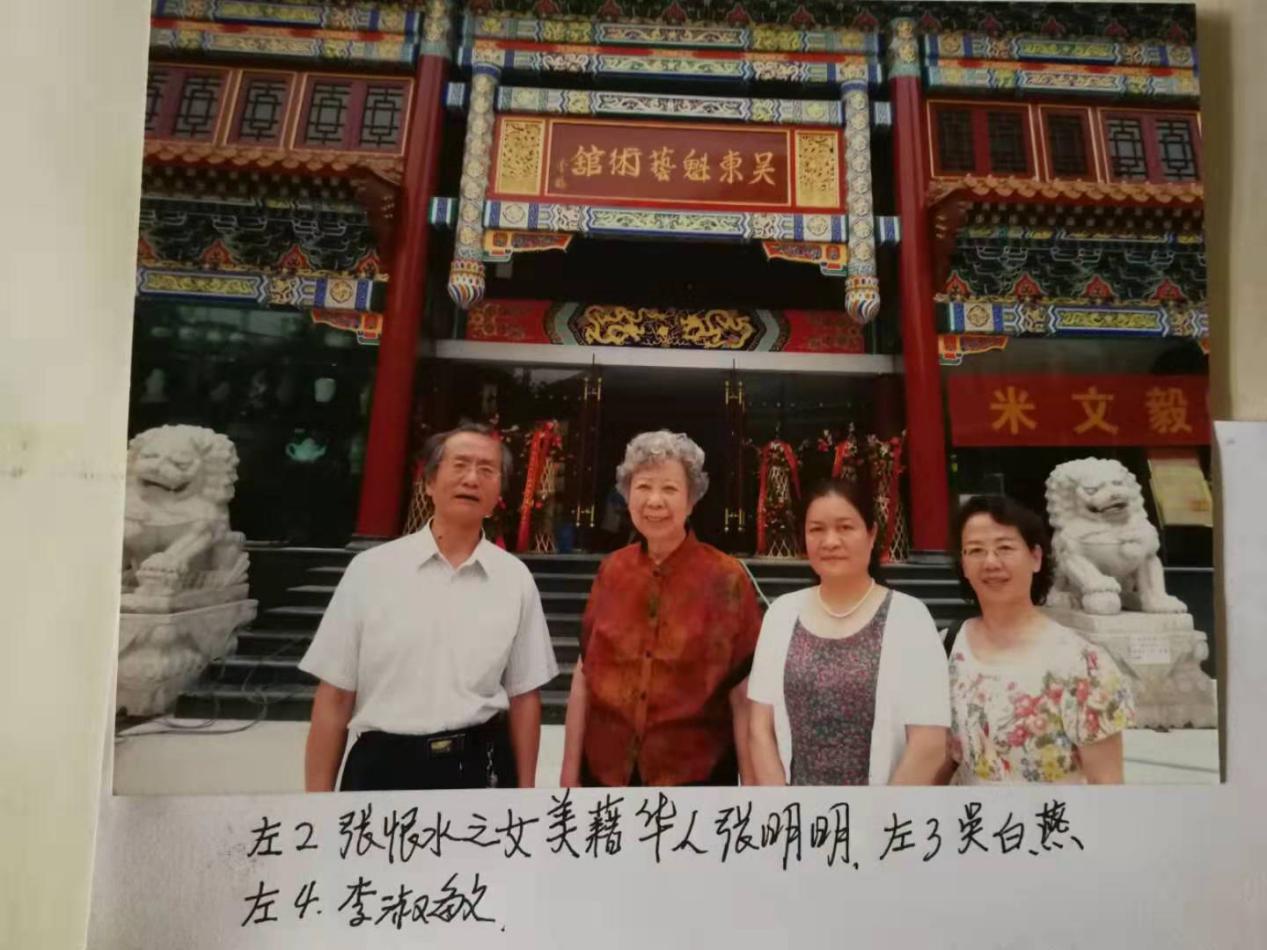 吴東魁藝術舘
米文毅
左2 张恨水之女美藉华人张明明. 左3 吴白燕、
左4. 李淑敏.